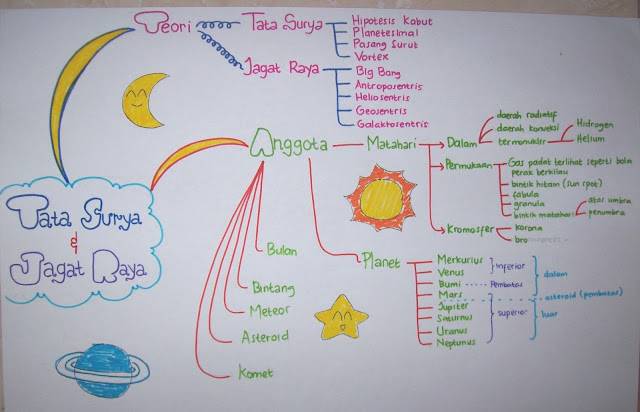 Tata Surya
&
Jagat Raya
Teori
Tata Surya
Hipotesis Kabut
Planetesimal
Pasang Surut
Vortex
Jagat Raya
Big Bang
Antroposentris
Heliosentris
Geosentris
Galaktosentris
Anggota
Matahari
Dalam
daerah radiatif
daerah konveksi
termonuklir
Hidrogen
Helium
Permukaan
Gas padat terlihat seperti bola
perak berkilau
bintik hitam (sun spot)
fabula
granula
bintik matahari
umbra
penumbra
Kromosfer
korona
Planet
Merkurius
Venus
Bumi
Mars
Jupiter
Saturnus
Uranus
Neptunus
inferior
Pembatas
superior
dalam
asteroid (pembatas)
luar
Bulan
Bintang
Meteor
Asteroid
Komet